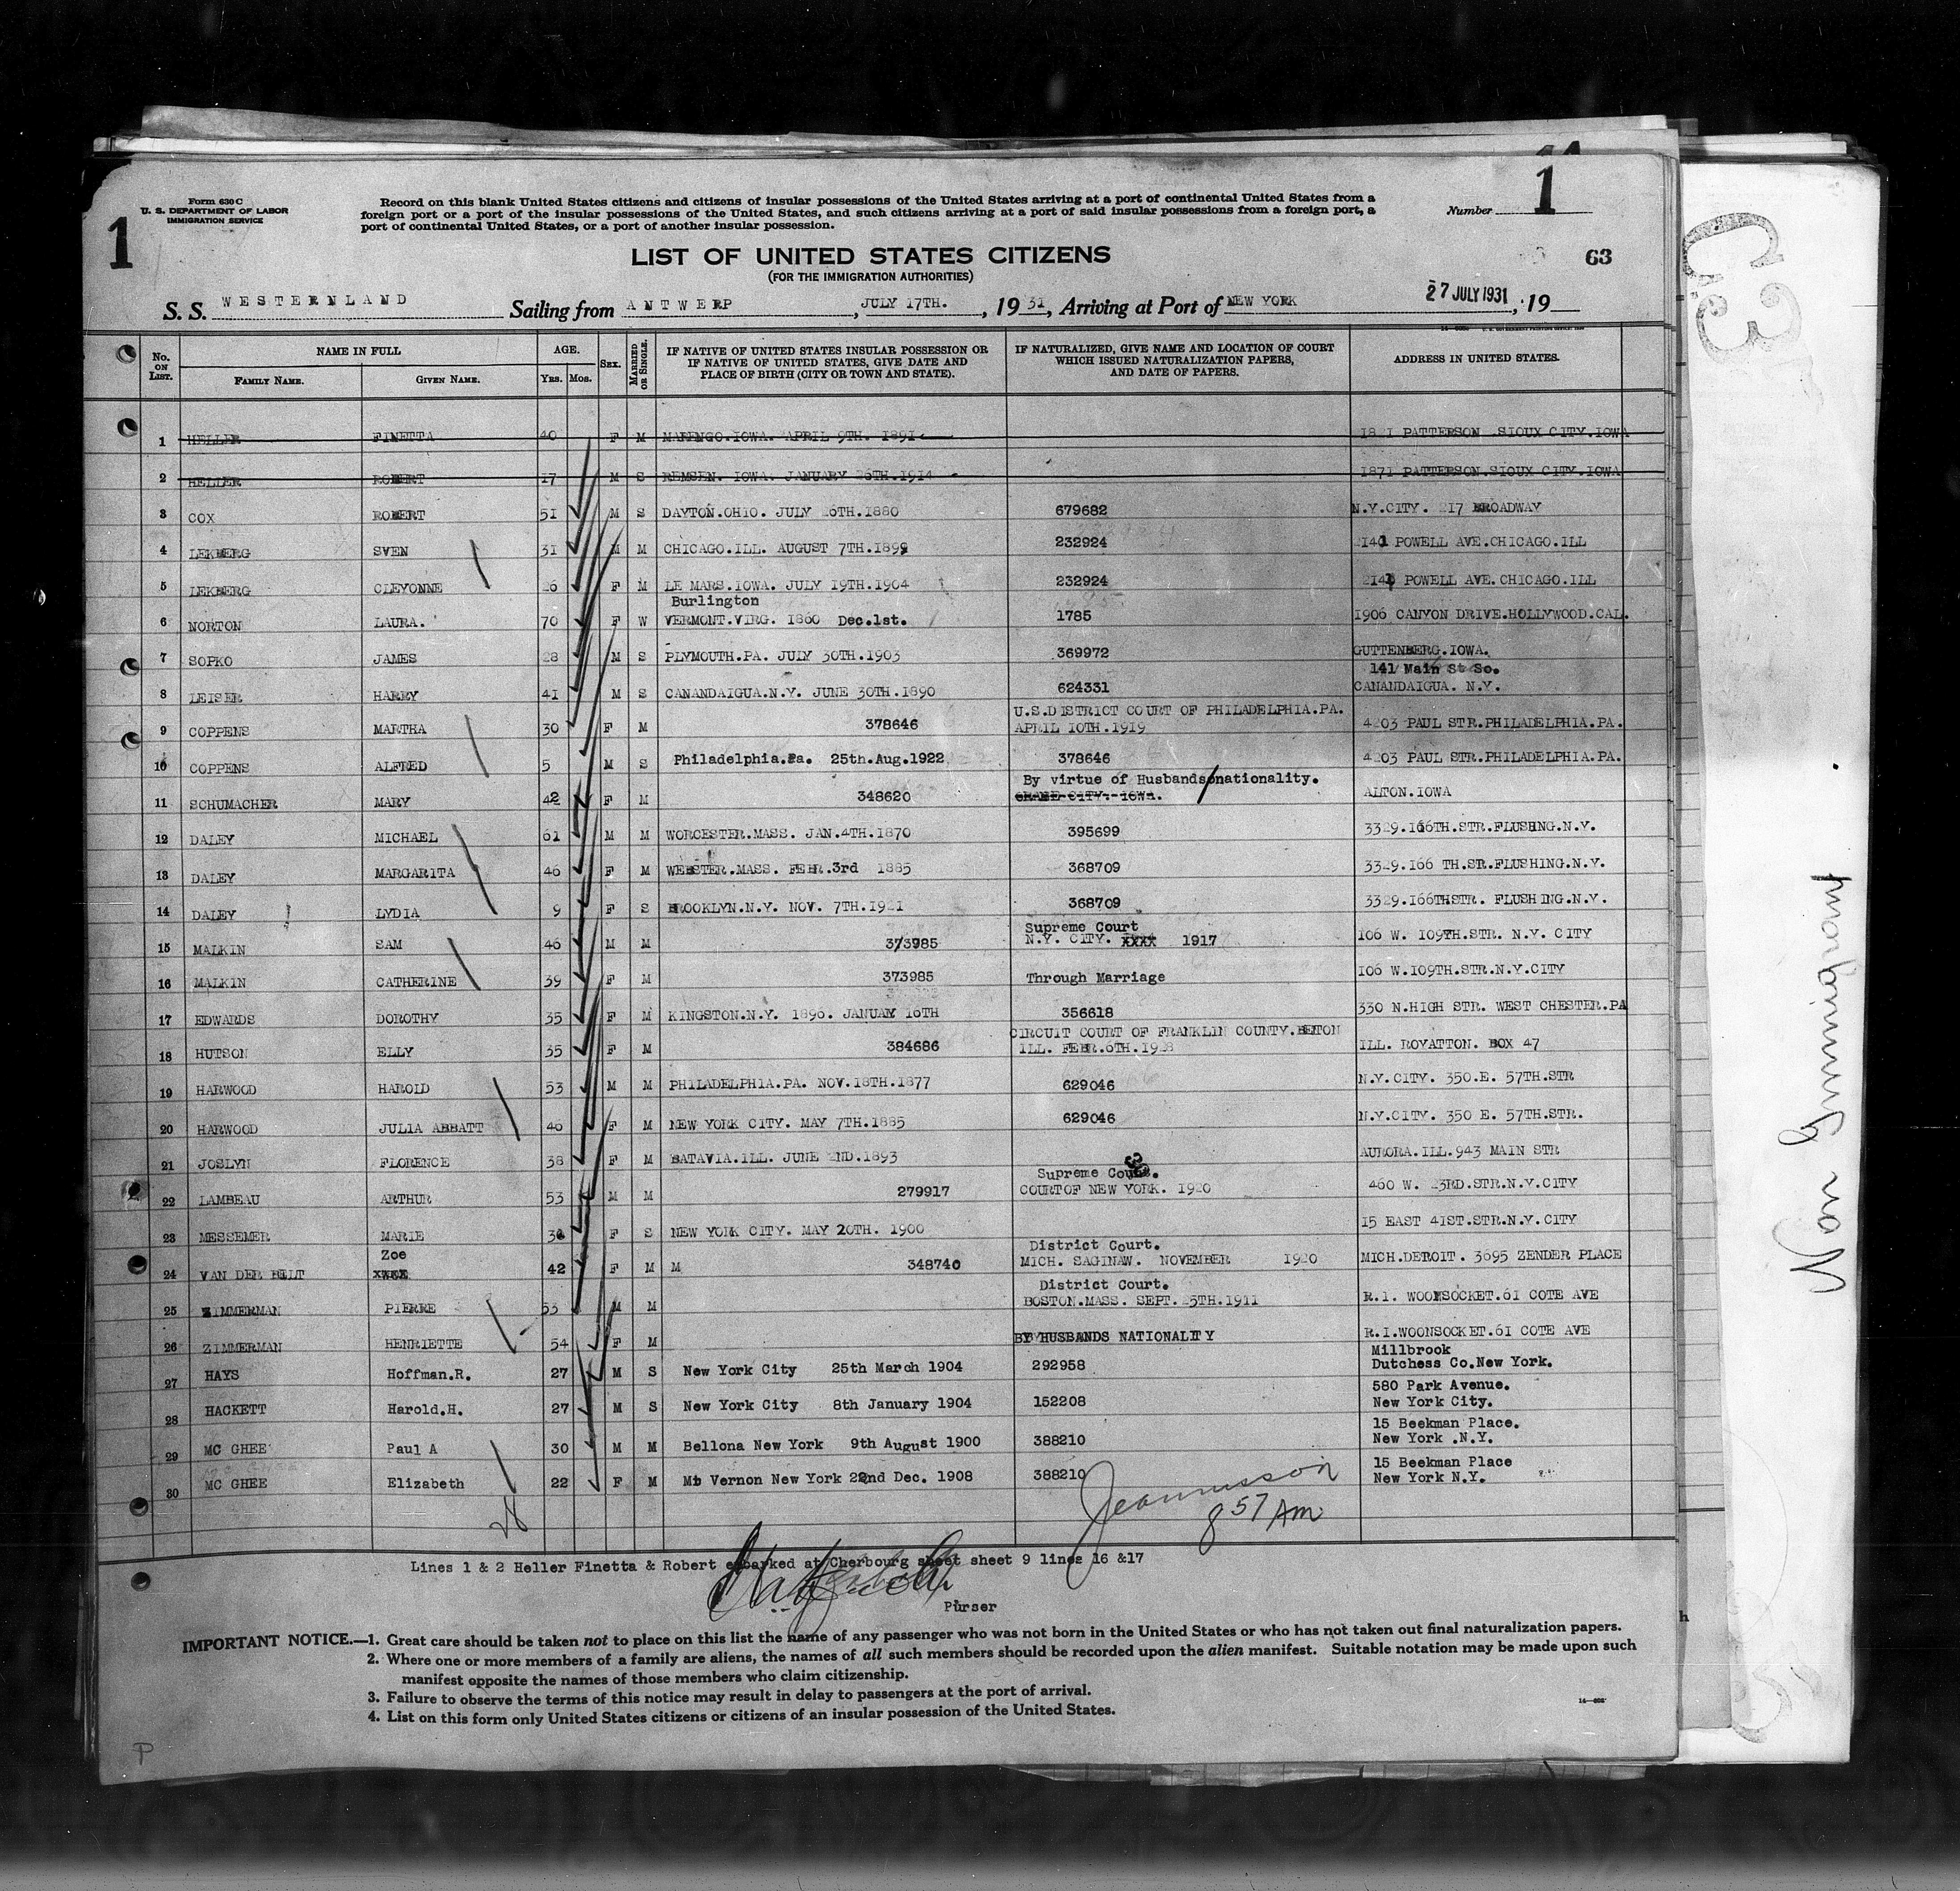 1
Number 1
Form 630 C
U. S. DEPARTMENT OF LABOR
IMMIGRATION SERVICE
1
Record on this blank United States citizens and citizens of insular possessions of the United States arriving at a port of continental United States from a
foreign port or a port of the insular possessions of the United States, and such citizens arriving at a port of said insular possessions from a foreign port, a
port of continental United States, or a port of another insular possession.
LIST OF UNITED STATES CITIZENS
(FOR THE IMMIGRATION AUTHORITIES)
63
S. S. WESTERNLAND Sailing from ANTWERP, JULY 17TH., 1931, Arriving at Port of NEW YORK 27 JULY 1931, 19
No. ON LIST. NAME IN FULL AGE. SEX. MARRIED OR SINGLE. IF NATIVE OF UNITED STATES INSULAR POSSESSION OR IF NATIVE OF UNITED STATES, GIVE DATE AND PLACE OF BIRTH (CITY OR TOWN AND STATE). IF NATURALIZED, GIVE NAME AND LOCATION OF COURT WHICH ISSUED NATURALIZATION PAPERS, AND DATE OF PAPERS. ADDRESS IN UNITED STATES.
FAMILY NAME. GIVEN NAME. YRS. MOS.
1 HELLER FINETTA 40 F M MARENGO.IOWA. APRIL 9TH. 1891 PATTERSON .SIOUX CITY.IOWA
2 HELLER ROBERT 17 M S REMSEN. IOWA. JANUARY 26TH.1914 1871 PATTERSON.SIOUX CITY.IOWA
3 COX ROBERT 51 M S DAYTON.OHIO. JULY 26TH.1880 679682 N.Y.CITY. 217 BROADWAY
4 LEKBERG SVEN 31 M M CHICAGO.ILL. AUGUST 7TH.1899 232924 2141 POWELL AVE.CHICAGO.ILL
5 LEKBERG CLEYONNE 26 F M LE MARS.IOWA. JULY 19TH.1904 232924 2141 POWELL AVE.CHICAGO.ILL
Burlington
6 NORTON LAURA. 70 F W VERMONT.VIRG. 1860 Dec.1st. 1785 1906 CANYON DRIVE.HOLLYWOOD.CAL.
7 SOPKO JAMES 28 M S PLYMOUTH.PA. JULY 30TH.1903 369972 GUTTENBERG.IOWA.
141 Main St So.
8 LEISER HARRY 41 M S CANANDAIGUA.N.Y. JUNE 30TH.1890 624331 CANANDAIGUA. N.Y.
U.S.DISTRICT COURT OF PHILADELPHIA.PA.
9 COPPENS MARTHA 30 F M 378646 APRIL 10TH.1919 4203 PAUL STR.PHILADELPHIA.PA.
10 COPPENS ALFRED 5 M S Philadelphia.Pa. 25th.Aug.1922 378646 4203 PAUL STR.PHILADELPHIA.PA.
By virtue of Husbands nationality.
11 SCHUMACHER MARY 42 F M 348620 CITY. IOWA. ALTON.IOWA
12 DALEY MICHAEL 61 M M WORCESTER.MASS. JAN.4TH.1870 395699 3329.166TH.STR.FLUSHING.N.Y.
13 DALEY MARGARITA 46 F M WEBSTER.MASS. FEBR.3rd 1885 368709 3329.166 TH.SR.FLUSHING.N.Y.
14 DALEY LYDIA 9 F S BROOKLYN.N.Y. NOV. 7TH.1921 368709 3329.166THSTR. FLUSHING.N.Y.
Supreme Court
15 MALKIN SAM 46 M M 373985 N.Y. CITY. XXXX 1917 106 W. 109TH.STR. N.Y. CITY
16 MALKIN CATHERINE 39 F M 373985 Through Marriage 106 W.109TH.STR.N.Y.CITY
17 EDWARDS DOROTHY 35 F M KINGSTON.N.Y. 1896. JANUAY 16TH 356618 330 N.HIGH STR. WEST CHESTER.PA
CIRCUIT COURT OF FRANKLIN COUNTY.BETON
18 HUTSON ELLY 35 F M 384686 ILL. FEBR.6TH.1928 ILL. ROYATTON. BOX 47
19 HARWOOD HAROLD 53 M M PHILADELPHIA.PA. NOV.18TH.1877 629046 N.Y.CITY. 350.E. 57TH.STR
20 HARWOOD JULIA ABBATT 46 F M NEW YORK CITY. MAY 7TH.1885 629046 N.Y.CITY. 350 E. 57TH.STR.
21 JOSLYN FLORENCE 38 F M BATAVIA.ILL. JUNE 2ND.1893 AURORA.ILL.943 MAIN STR
Supreme Court.
22 LAMBEAU ARTHUR 53 M M 279917 COURTOF NEW YORK. 1920 460 W. 23RD.STR.N.Y.CITY
23 MESSEMER MARIE F S NEW YORK CITY. MAY 20TH. 1900 15 EAST 41ST.STR.N.Y.CITY
Zoe District Court.
24 VAN DER BILT 42 F M M 348740 MICH. SAGINAW. NOVEMBER 1920 MICH.DETROIT. 3695 ZENDER PLACE
District Court.
25 ZIMMERMAN PIERRE 53 M M BOSTON.MASS. SEPT.25TH.1911 R.I. WOONSOCKET.61 COTE AVE
26 ZIMMERMAN HENRIETTE 54 F M BY HUSBANDS NATIONALITY R.I.WOONSOCKET.61 COTE AVE
Millbrook
27 HAYS Hoffman.R. 27 M S New York City 25th March 1904 292958 Dutchess Co.New York.
580 Park Avenue.
28 HACKETT Harold.H. 27 M S New York City 8th January 1904 152208 New York City.
15 Beekman Place.
29 MC GHEE Paul A 30 M M Bellona New York 9th August 1900 388210 New York .N.Y.
15 Beekman Place
30 MC GHEE Elizabeth 22 F M Mt Vernon New York 22nd Dec. 1908 388210 New York N.Y.
28
8 57 AM
Lines 1 & 2 Heller Finetta & Robert embarked at Cherbourg sheet sheet 9 lines 16 &17
Purser
IMPORTANT NOTICE.—1. Great care should be taken not to place on this list the name of any passenger who was not born in the United States or who has not taken out final naturalization papers.
2. Where one or more members of a family are aliens, the names of all such members should be recorded upon the alien manifest. Suitable notation may be made upon such
manifest opposite the names of those members who claim citizenship.
3. Failure to observe the terms of this notice may result in delay to passengers at the port of arrival.
4. List on this form only United States citizens or citizens of an insular possession of the United States.
P
63
Non Immigrant